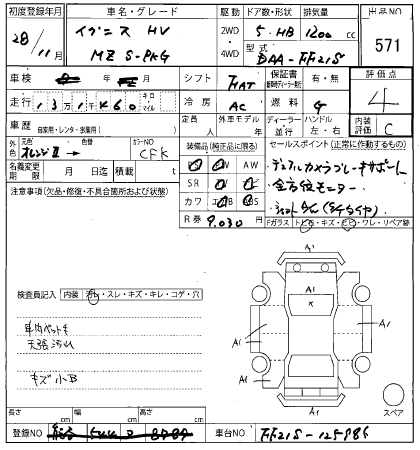 初度登録年月 車名・グレード 駆動 ドア数・形状 排気量 出品NO
28/11月 イグニス HV 2WD・4WD 5・HB 1200cc 571
MZ S-PKG 型式 DAA-FF21S
車検 シフト FAT 保証書 有・無 評価点
走行 キロ・マイル 冷房 AC 燃料 G 4
定員 人 外車モデル 年 ディーラー・並行 ハンドル 左・右 内装評価 C
車歴 自家用・レンタ・事業用( )
外色 元色 オレンジⅡ → 色替 カラーNO CFK
装備品(純正品に限る) セールスポイント(正常に作動するもの)
PS PW AW
デュアルカメラブレーキサポート
名義変更期限 月 日迄 積載 t
SR
全方位モニター
注意事項(欠品・修復・不具合箇所および状態)
カワ
R券 9,030 円
Fガラス トビ石・キズ・ヒビ・ワレ・リペア跡
A1
検査員記入 内装 汚れ・スレ・キズ・キレ・コゲ・穴
A1 A1
A1 A1
車内ペットモ
天張汚れ
キズ小B
A1
スペア
長さ cm 幅 cm 高さ cm
登録NO 車台NO FF21S-125986